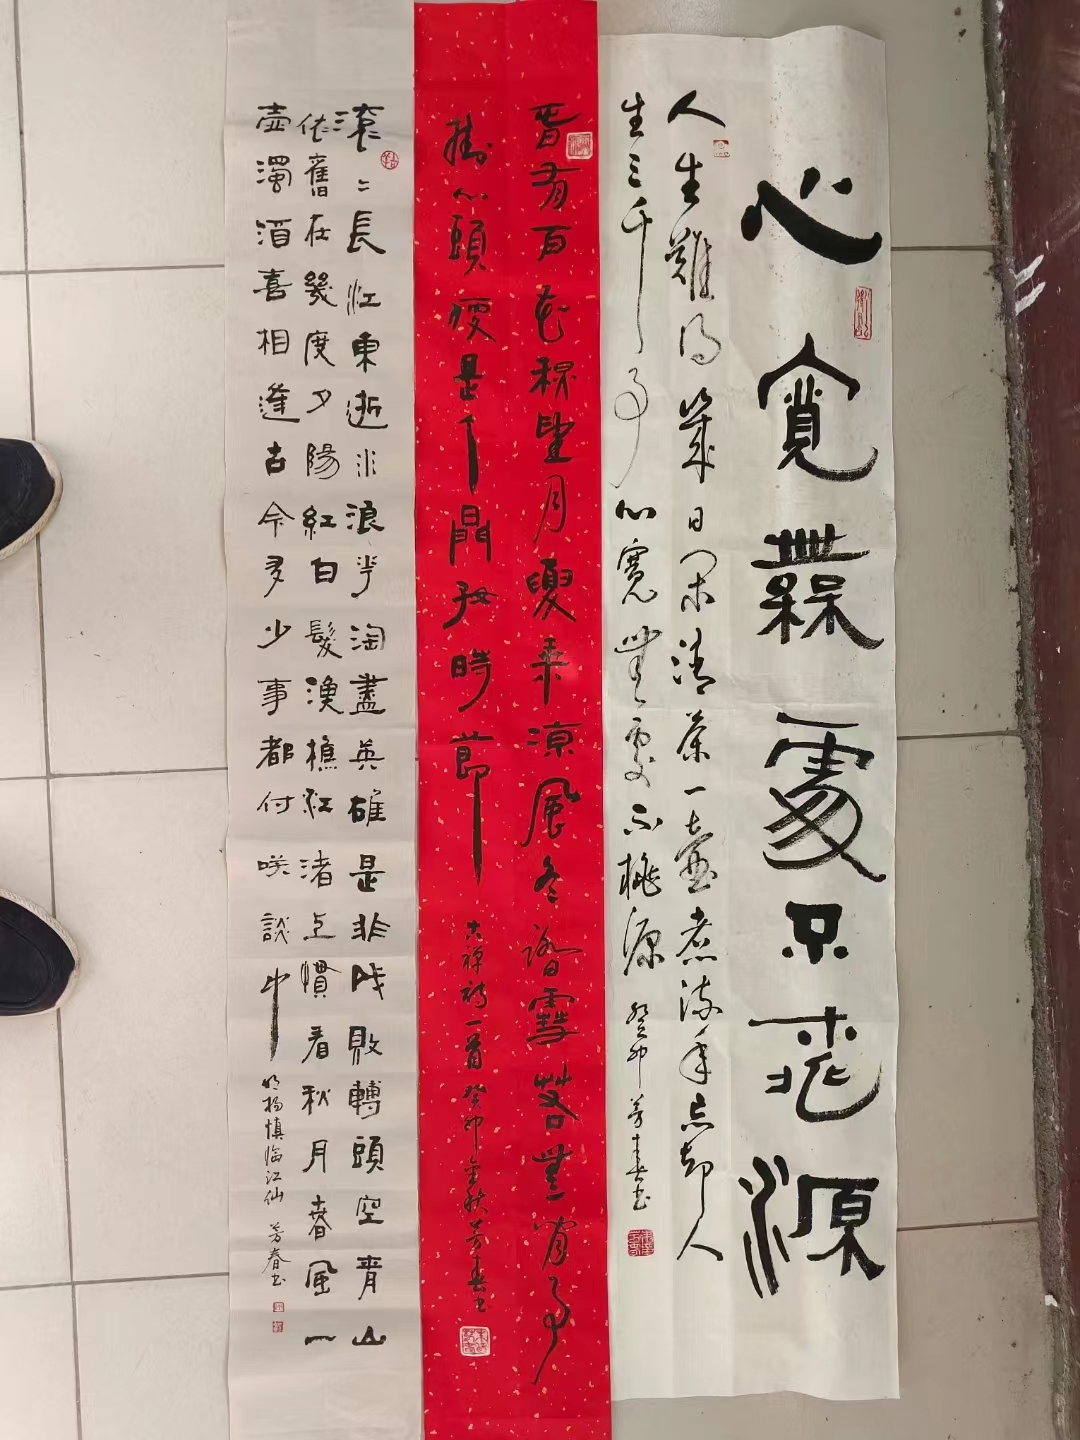 心寬無處不桃源
人生難得幾日閑清茶一壺煮流年忘却人
生三千事心寬無處不桃源 癸卯芳春书
春有百花秋望月夏乘涼風冬踏雪若無閑事
掛心頭便是人間好時節 古禪詩一首癸卯金秋芳春书
滾二長江東逝水浪花淘盡英雄是非成敗轉頭空青山
依舊在幾度夕陽紅白髮漁樵江渚上慣看秋月春風一
壺濁酒喜相逢古今多少事都付咲談中 明楊慎臨江仙 芳春书